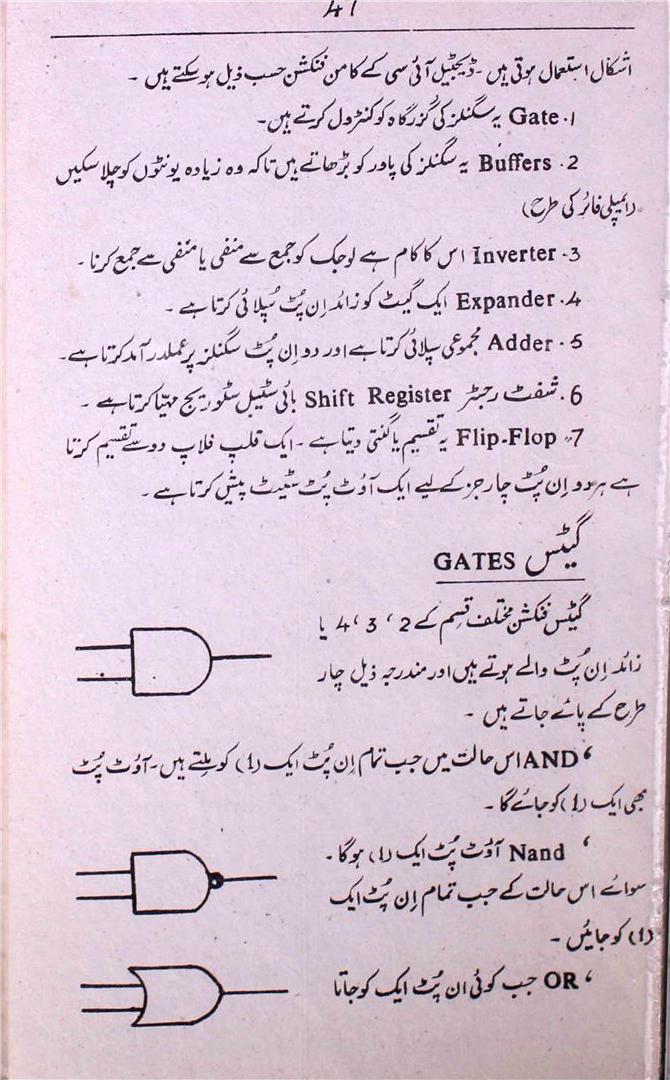 41
اشکال استعمال ہوتی ہیں ۔ ڈیجیٹیل آئی سی کے کامن فنکشن حسب ذیل ہو سکتے ہیں ۔
1۔ Gate یہ سگنلز کی گزرگاہ کو کنٹرول کرتے ہیں۔
2۔ Buffers یہ سگنلز کی پاور کو بڑھاتے ہیں تاکہ وہ زیادہ یونٹوں کو چلا سکیں
(ایمپلی فائر کی طرح)
3۔ Inverter اس کا کام ہے لوجک کو جمع سے منفی یا منفی سے جمع کرنا ۔
4۔ Expander ایک گیٹ کو زائد اِن پُٹ سپلائی کرتا ہے ۔
5۔ Adder مجموعی سپلائی کرتا ہے اور دو اِن پُٹ سگنلز پر عملدرآمد کرتا ہے۔
6۔ شفٹ رجسٹر Shift Register بائی سٹیبل سٹوریج مہیا کرتا ہے ۔
7۔ Flip-Flop یہ تقسیم یا گنتی دیتا ہے ۔ ایک فلپ فلاپ دو سے تقسیم کرتا
ہے ہر دو اِن پُٹ چارجز کے لیے ایک آؤٹ پُٹ سٹیٹ پیش کرتا ہے ۔
گیٹس GATES
گیٹس فنکشن مختلف قسم کے 2 ، 3 ، 4 یا
زائد اِن پُٹ والے ہوتے ہیں اور مندرجہ ذیل چار
طرح کے پائے جاتے ہیں ۔
، AND اس حالت میں جب تمام اِن پُٹ ایک (1) کو ملتے ہیں ۔ آؤٹ پُٹ
بھی ایک (1) کو جائے گا ۔
، Nand آؤٹ پُٹ ایک (1) ہوگا ۔
سوائے اس حالت کے جب تمام اِن پُٹ ایک
(1) کو جائیں ۔
، OR جب کوئی ان پُٹ ایک کو جاتا